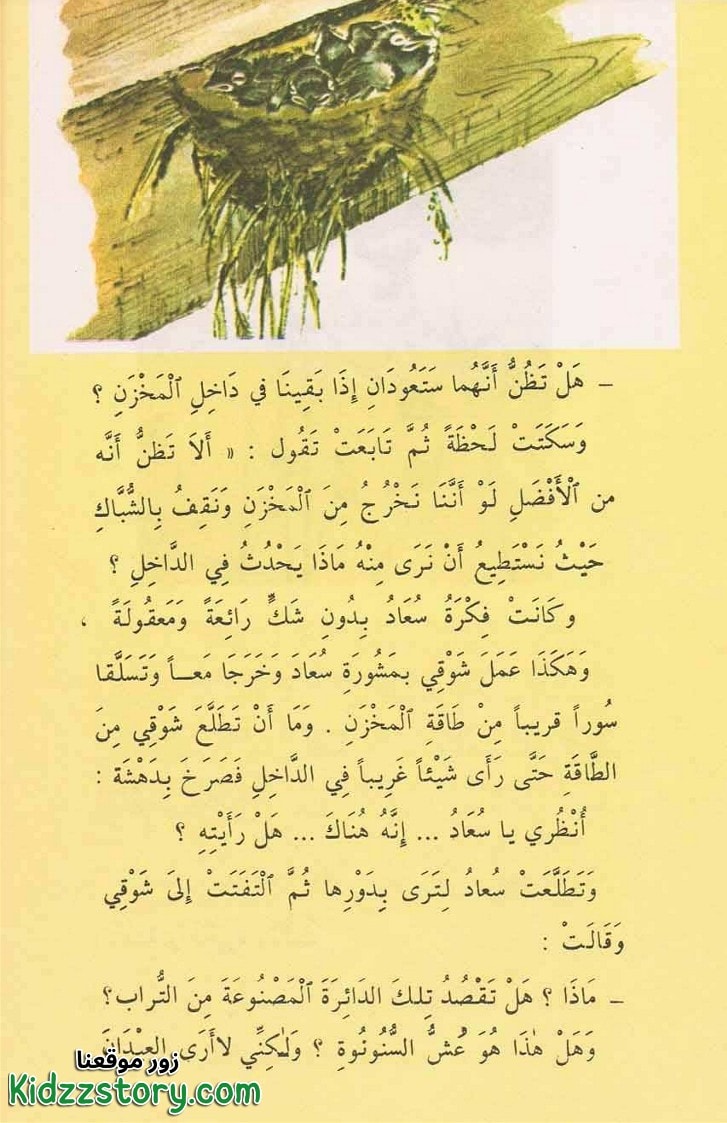 – هَلْ تَظُنُّ أَنَّهُما سَتَعُودَانِ إِذَا بَقِينَا في دَاخِلِ ٱلْمَخْزَنِ ؟
وَسَكَتَتْ لَحْظَةً ثُمَّ تَابَعَتْ تَقُول : « أَلاَ تَظنُّ أَنَّه
من ٱلْأَفْضَلِ لَوْ أَنَّنَا نَخْرُجُ مِنَ ٱلْمَخْزَنِ وَنَقِفُ بِالشُّبَّاكِ
حَيْثُ نَسْتَطِيعُ أَنْ نَرَى مِنْهُ مَاذَا يَحْدُثُ فِي الدَّاخِلِ ؟
وكَانَتْ فِكْرَةُ سُعَادُ بِدُونِ شَكٍّ رَائِعَةً وَمَعقُولَةً ،
وَهَكَذَا عَمَلَ شَوْقِي بمَشُورَةِ سُعَادَ وَخَرَجَا مَعــاً وَتَسَلَّقا
سُوراً قريباً مِنْ طَاقَةِ ٱلْمَخْزَنِ . وَمَا أَنْ تَطَلَّعَ شَوْقِي مِنَ
الطَّاقَةِ حَتَّى رَأَى شَيْئاً غَرِيباً فِي الدَّاخِلِ فَصَرَخَ بِدَهْشَة :
أُنْظُري يا سُعَادُ ... إِنَّهُ هُنَاكَ ... هَلْ رَأَيْتِهِ ؟
وَتَطَلَّعَتْ سُعادُ لِتَرَى بِدَوْرِها ثُمَّ ٱلْتَفَتَتْ إِلىَ شَوْقِي
وَقَالَتْ :
– مَاذَا ؟ هَلْ تَقْصُدُ تِلكَ الدَائِرَةَ ٱلْمَصْنُوعَةَ مِنَ التُّراب؟
وَهَلْ هٰذَا هُوَ عُشُّ السُّنُونُوةِ ؟ وَلٰكِنِّي لاأَرَى العِيْدَانَ
زور موقعنا
Kidzzstory.com